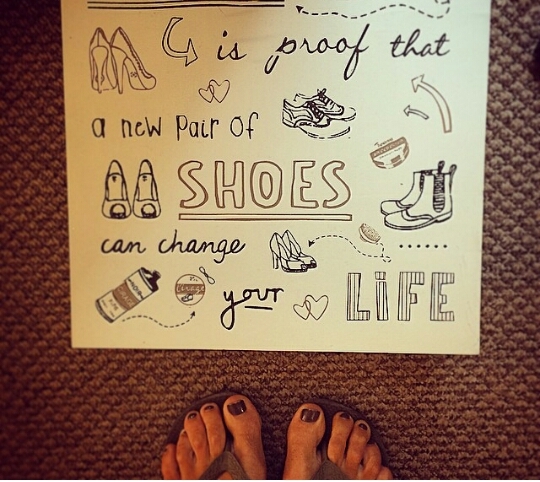 is proof that
a new pair of
SHOES
can change
your LiFE